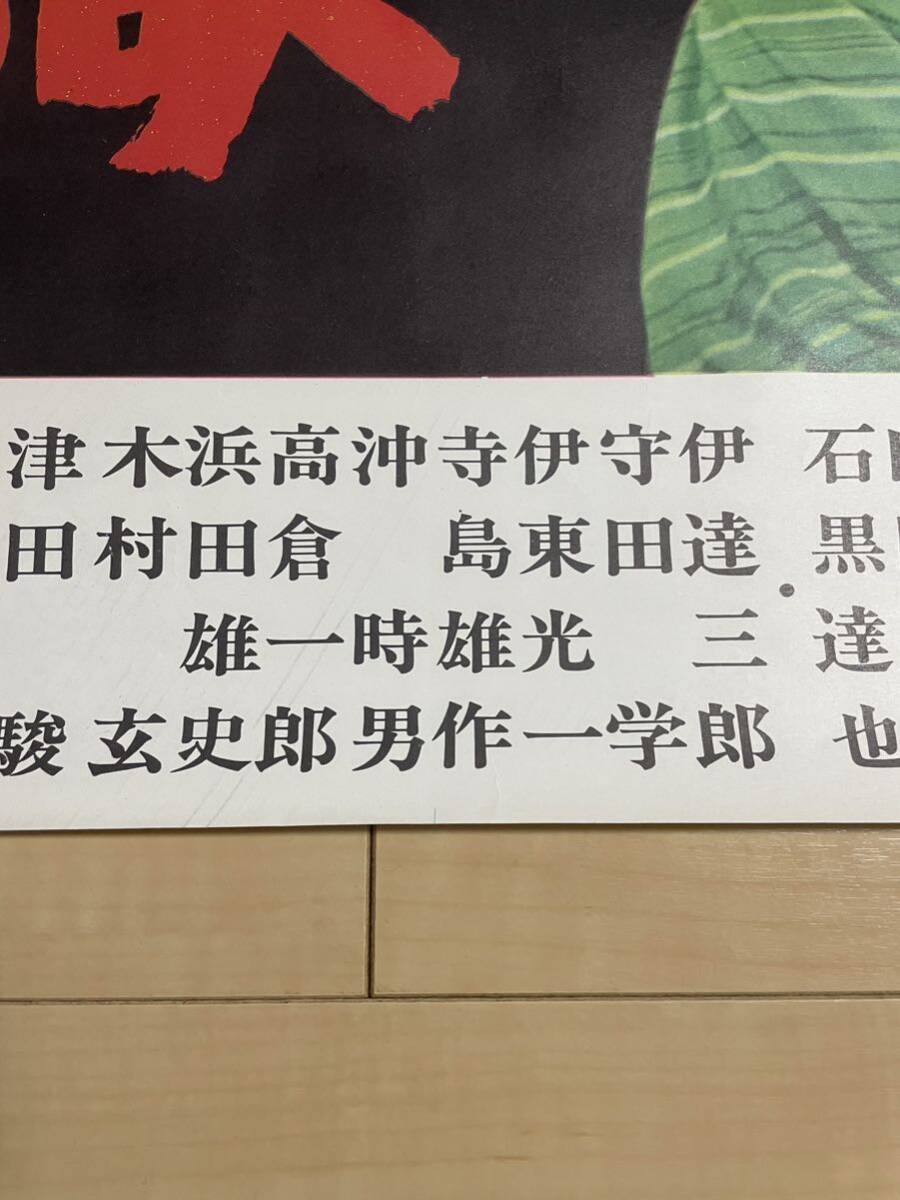 石黒達也
・
伊達三郎
守田学
伊東光一
寺島雄作
沖時男
高倉一郎
浜田雄史
木村玄
津田駿